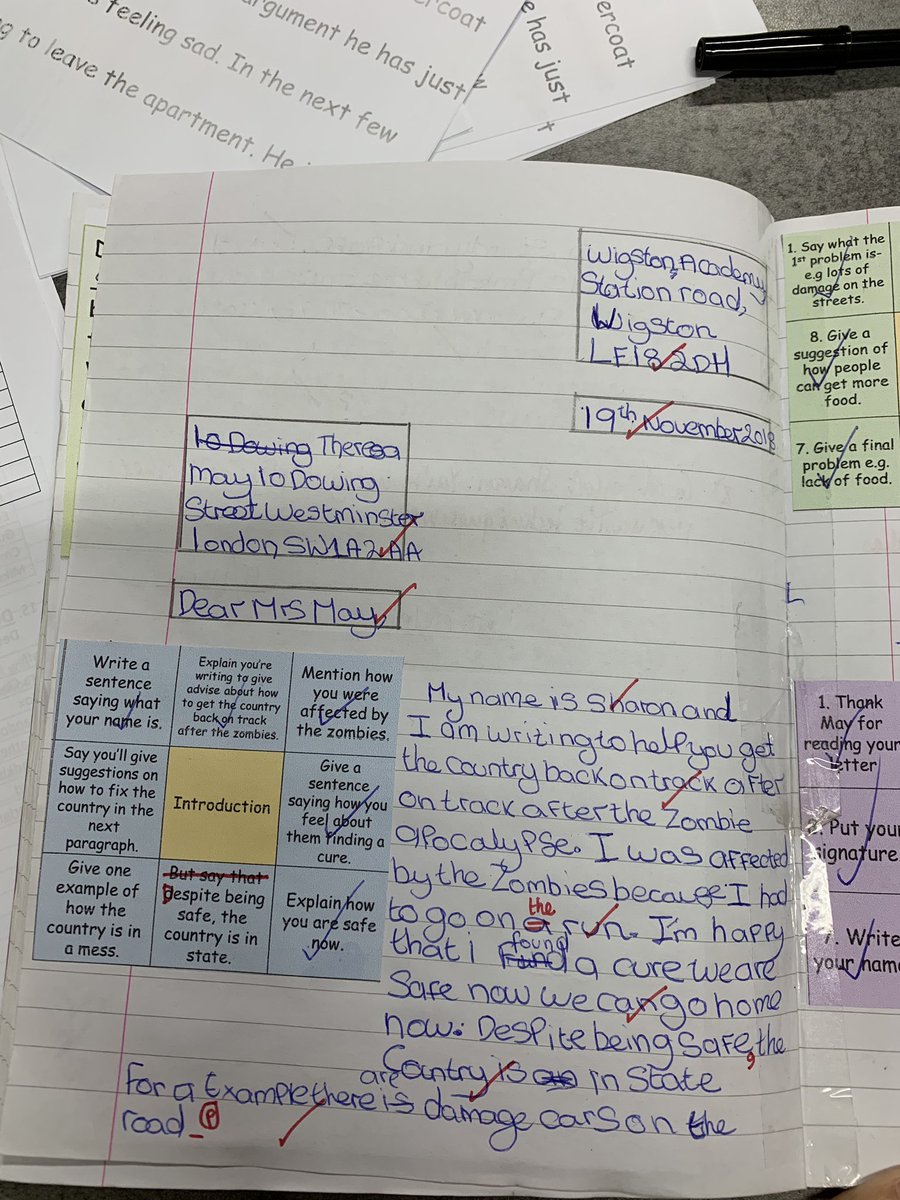 ercoat
argument he has just
s feeling sad. In the next few
to leave the apartment. He
ercoat
e has just
t
Wigston Academy
Station road,
Wigston
LE18 2DH
19th November 2018
10 Dowing Theresa
May 10 Dowing
Street Westminster
london SW1A2AA
Dear Mrs May,
Write a
sentence
saying what
your name is.
Explain you're
writing to give
advise about how
to get the country
back on track
after the zombies.
Mention how
you were
affected by
the zombies.
Say you'll give
suggestions on
how to fix the
country in the
next
paragraph.
Introduction
Give a
sentence
saying how you
feel about
them finding a
cure.
Give one
example of
how the
country is in
a mess.
But say that
Despite being
safe, the
country is in
state.
Explain how
you are safe
now.
My name is Sharon and
I am writing to help you get
the country back on track after
on track after the Zombie
apocalypse. I was affected
by the Zombies because I had
to go on a the run. I'm happy
that i found a cure we are
Safe now we can go home
now. Despite being safe, the
Country is in State
For a Example there is are damage cars on the
road P
1. Say what the
1st problem is-
e.g lots of
damage on the
streets.
8. Give a
suggestion of
how people
can get more
food.
7. Give a final
problem e.g.
lack of food.
L
1. Thank
May for
reading your
letter
Put your
signature
7. Write
your name